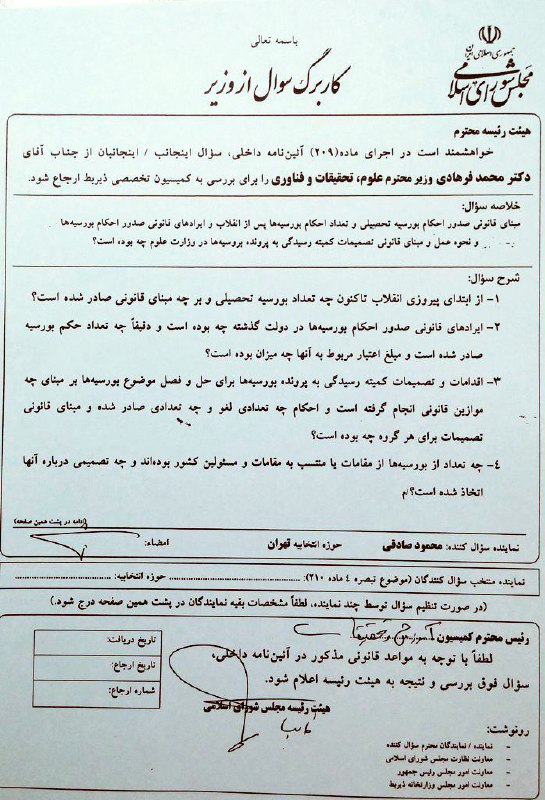 باسمه تعالی
جمهوری اسلامی ایران
مجلس شورای اسلامی
کاربرگ سوال از وزیر
هیئت رئیسه محترم
خواهشمند است در اجرای ماده(۲۰۹) آئین‌نامه داخلی، سؤال اینجانب / اینجانبان از جناب آقای
دکتر محمد فرهادی وزیر محترم علوم، تحقیقات و فناوری را برای بررسی به کمیسیون تخصصی ذیربط ارجاع شود.
خلاصه سؤال:
مبنای قانونی صدور احکام بورسیه تحصیلی و تعداد احکام بورسیه‌ها پس از انقلاب و ایرادهای قانونی صدور احکام بورسیه‌ها
و نحوه عمل و مبنای قانونی تصمیمات کمیته رسیدگی به پرونده بروسیه‌ها در وزارت علوم چه بوده است؟
شرح سؤال:
۱- از ابتدای پیروزی انقلاب تاکنون چه تعداد بورسیه تحصیلی و بر چه مبنای قانونی صادر شده است؟
۲- ایرادهای قانونی صدور احکام بورسیه‌ها در دولت گذشته چه بوده است و دقیقاً چه تعداد حکم بورسیه
صادر شده است و مبلغ اعتبار مربوط به آنها چه میزان بوده است؟
۳- اقدامات و تصمیمات کمیته رسیدگی به پرونده بورسیه‌ها برای حل و فصل موضوع بورسیه‌ها بر مبنای چه
موازین قانونی انجام گرفته است و احکام چه تعدادی لغو و چه تعدادی صادر شده و مبنای قانونی
تصمیمات برای هر گروه چه بوده است؟
۴- چه تعداد از بورسیه‌ها از مقامات یا منتسب به مقامات و مسئولین کشور بوده‌اند و چه تصمیمی درباره آنها
اتخاذ شده است؟/م
(ادامه در پشت همین صفحه)
نماینده سؤال کننده: محمود صادقی حوزه انتخابیه تهران امضاء:
نماینده منتخب سؤال کنندگان (موضوع تبصره ۴ ماده ۲۱۰): ........ حوزه انتخابیه: ........
(در صورت تنظیم سؤال توسط چند نماینده، لطفاً مشخصات بقیه نمایندگان در پشت همین صفحه درج شود.)
رئیس محترم کمیسیون آموزش و تحقیقات
لطفاً با توجه به مواعد قانونی مذکور در آئین‌نامه داخلی،
سؤال فوق بررسی و نتیجه به هیئت رئیسه اعلام شود.
هیئت رئیسه مجلس شورای اسلامی
تاریخ دریافت:
تاریخ ارجاع:
شماره ارجاع:
رونوشت:
- نماینده / نمایندگان محترم سؤال کننده
- معاونت نظارت مجلس شورای اسلامی
- معاونت امور مجلس رئیس جمهور
- معاونت امور مجلس وزارتخانه ذیربط